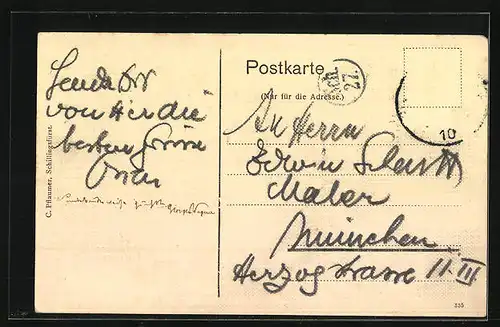 Sende Dir
von hier die
besten Grüsse
C. Pflaumer, Schillingsfürst.
Postkarte
(Nur für die Adresse.)
27.
10
An Herrn
Edwin
Maler
München
Herzogstrasse 11.III
335